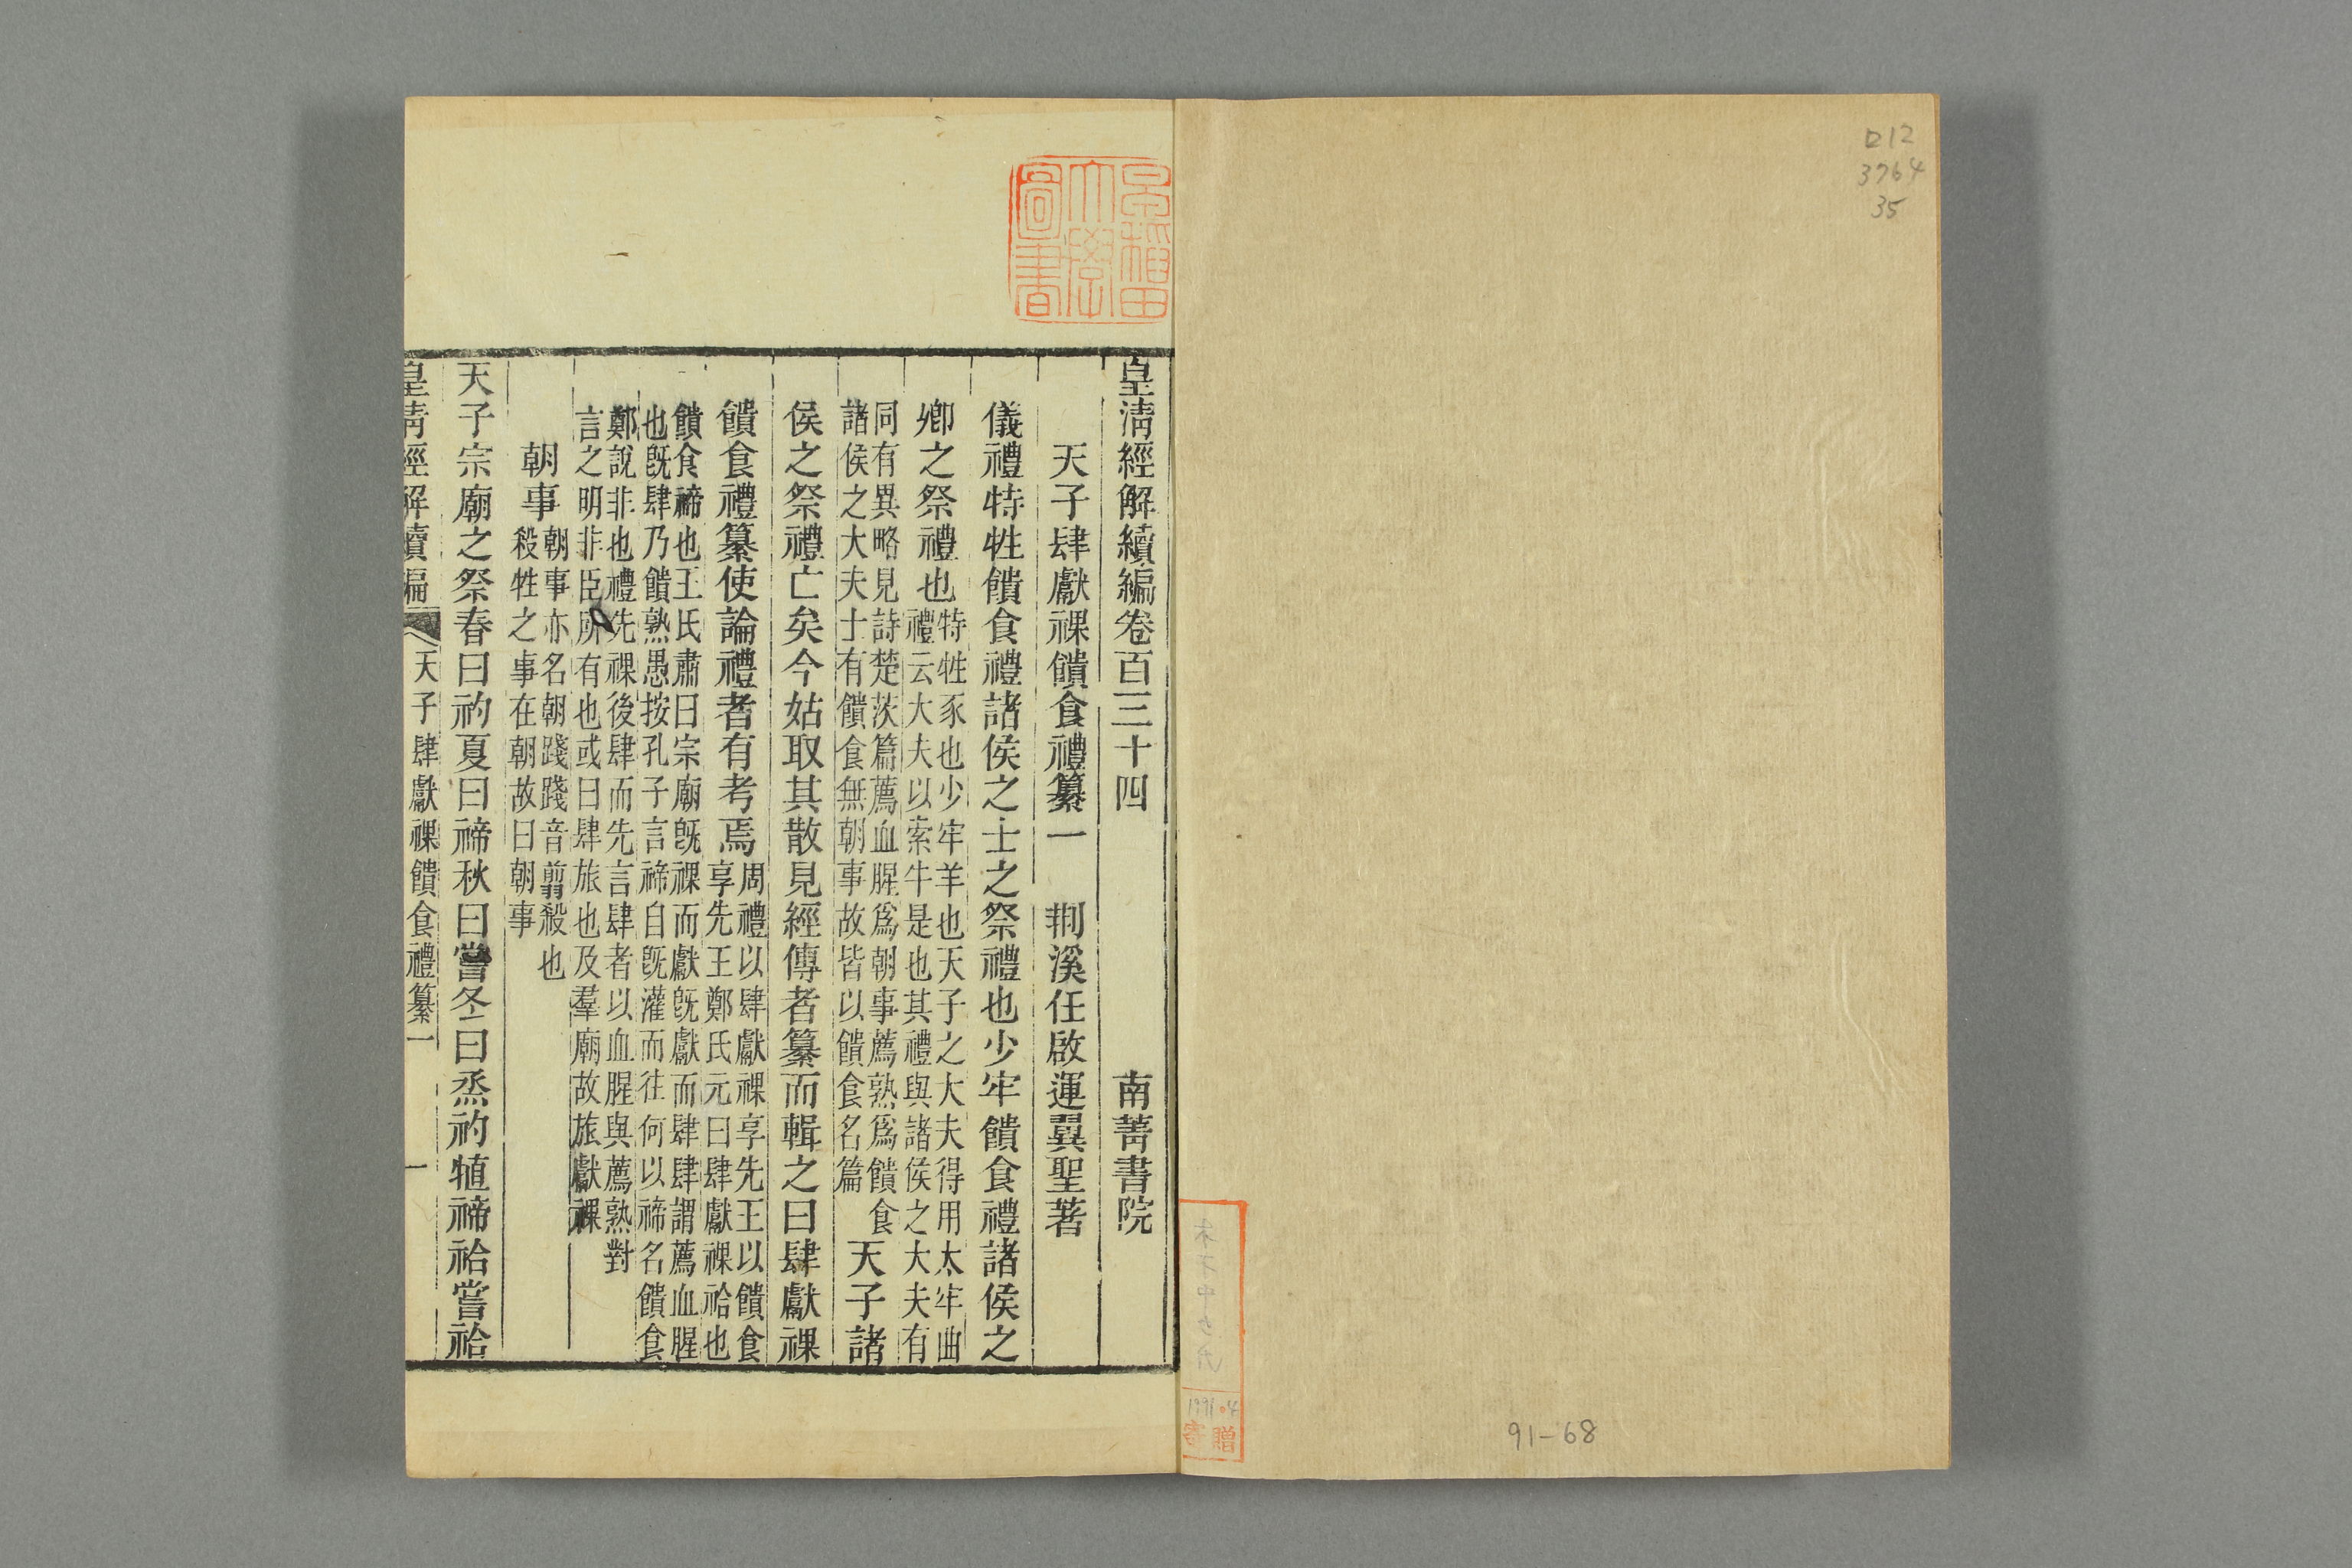 ロ12
3764
35
早稲田
大學
圖書
皇清經解續編卷百三十四
南菁書院
天子肆獻祼饋食禮纂一
荆溪任啟運翼聖著
儀禮特牲饋食禮諸侯之士之祭禮也少牢饋食禮諸侯之
卿之祭禮也
特牲豕也少牢羊也天子之大夫得用太牢曲
禮云大夫以索牛是也其禮與諸侯之大夫有
同有異略見詩楚茨篇薦血腥爲朝事薦熟爲饋食
諸侯之大夫士有饋食無朝事故皆以饋食名篇
天子諸
侯之祭禮亡矣今姑取其散見經傳者纂而輯之曰肆獻祼
饋食禮纂使論禮者有考焉
周禮以肆獻祼享先王以饋食
享先王鄭氏元曰肆獻祼祫也
饋食禘也王氏肅曰宗廟旣祼而獻旣獻而肆肆謂薦血腥
也旣肆乃饋熟愚按孔子言禘自旣灌而往何以禘名饋食
鄭說非也禮先祼後肆而先言肆者以血腥與薦熟對
言之明非臣所有也或曰肆旅也及羣廟故旅獻祼
朝事
朝事亦名朝踐踐音翦殺也
殺牲之事在朝故曰朝事
天子宗廟之祭春曰礿夏曰禘秋曰嘗冬曰烝礿犆禘祫嘗祫
皇清經解續編
天子肆獻祼饋食禮纂一
一
1991.4
寄贈
91-68